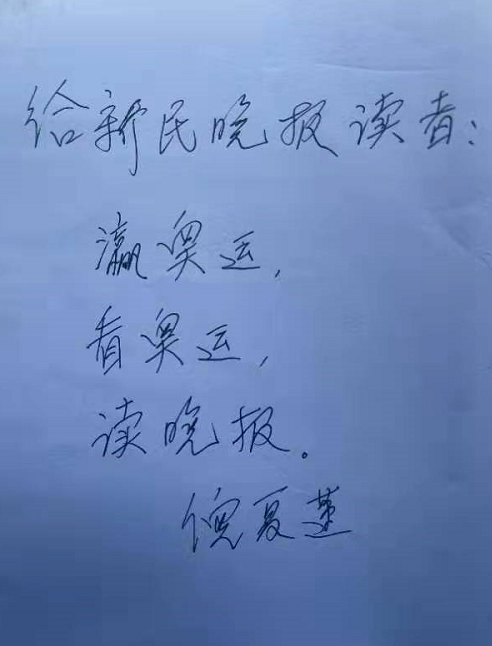 给新民晚报读者：
瀛奥运，
看奥运，
读晚报。
倪夏莲